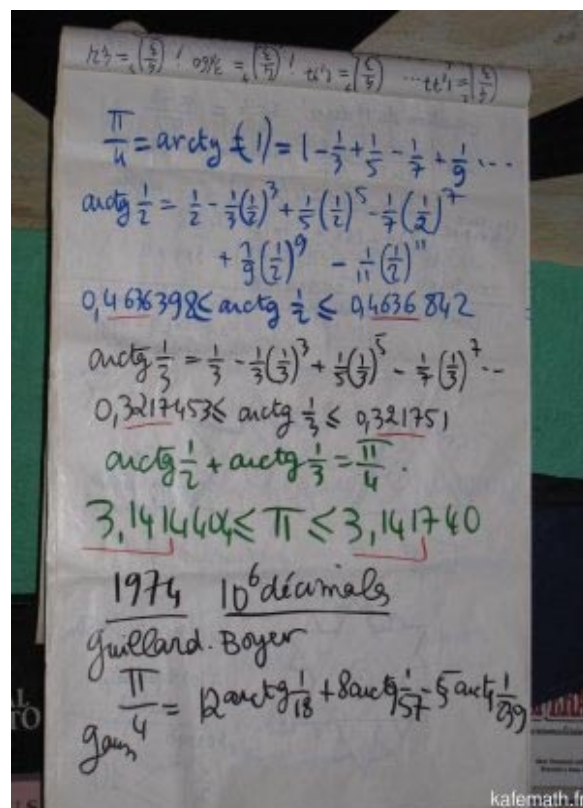 π/4 = arctg(1) = 1 - 1/3 + 1/5 - 1/7 + 1/9 ...
arctg 1/2 = 1/2 - 1/3(1/2)^3 + 1/5(1/2)^5 - 1/7(1/2)^7
+ 1/9(1/2)^9 - 1/11(1/2)^11
0,4636398 ≤ arctg 1/2 ≤ 0,4636842
arctg 1/3 = 1/3 - 1/3(1/3)^3 + 1/5(1/3)^5 - 1/7(1/3)^7 ...
0,3217453 ≤ arctg 1/3 ≤ 0,321751
arctg 1/2 + arctg 1/3 = π/4.
≤ π ≤ 3,141740
1974 10^6 décimals
Guillard. Boyer
π/4 = 12 arctg 1/18 + 8 arctg 1/57 - 5 arctg 1/239
Gauss
kafemath.fr